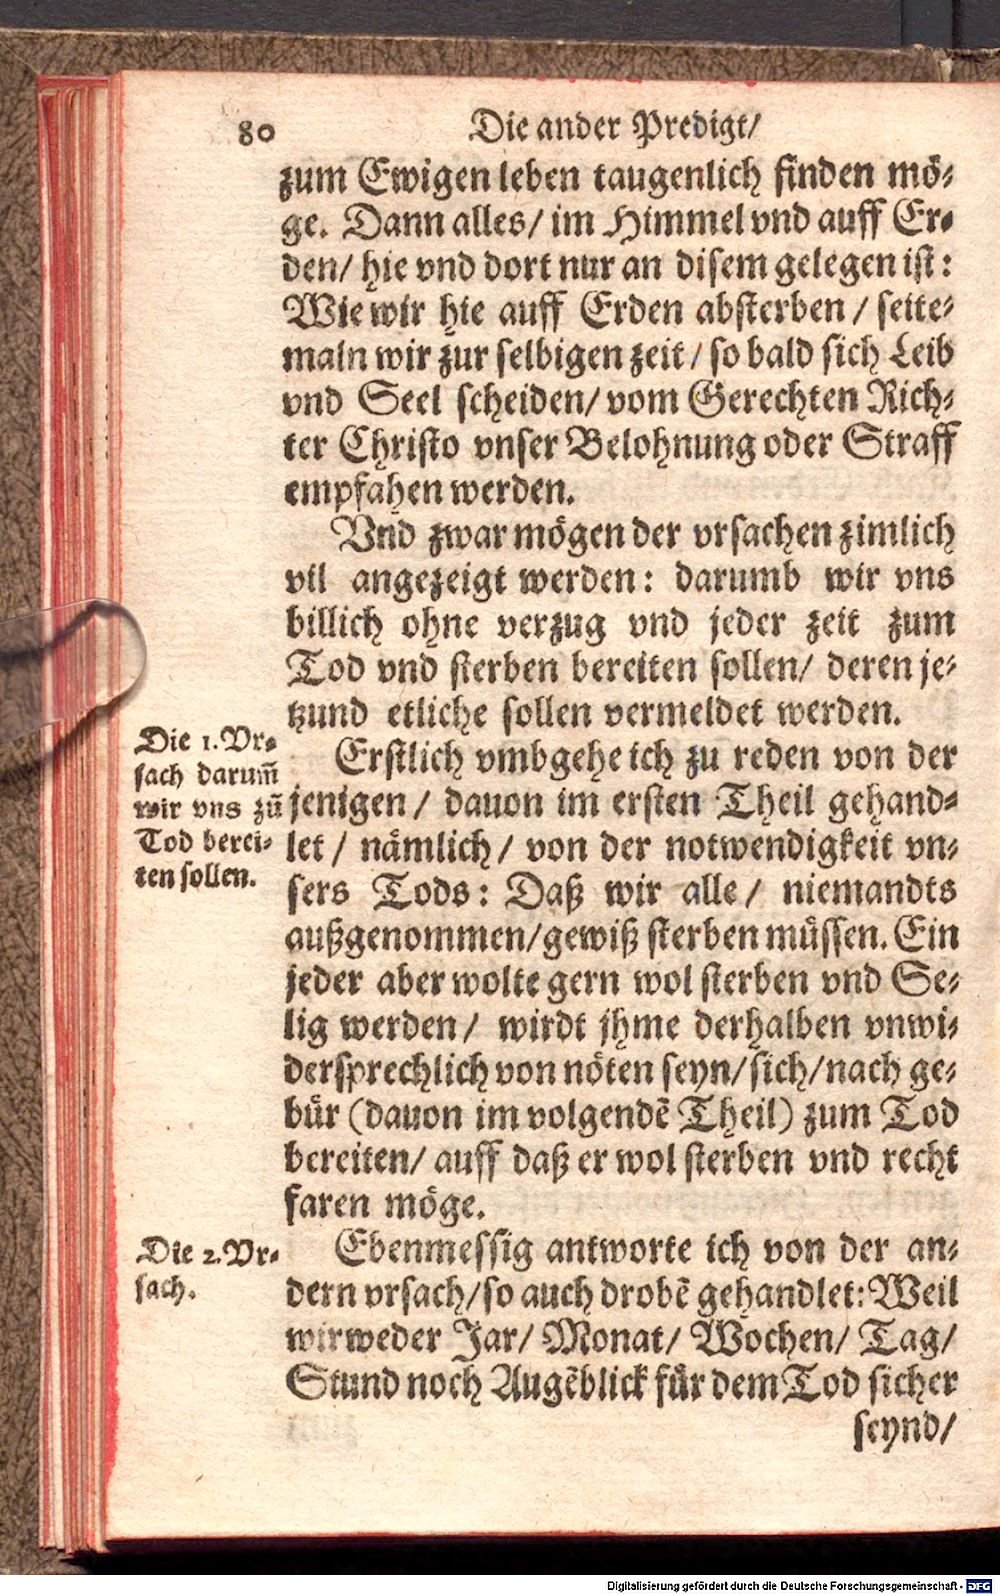 80 Die ander Predigt/
zum Ewigen leben taugenlich finden mö-
ge. Dann alles/ im Himmel vnd auff Er-
den/ hie vnd dort nur an disem gelegen ist:
Wie wir hie auff Erden absterben/ seite-
maln wir zur selbigen zeit/ so bald sich Leib
vnd Seel scheiden/ vom Gerechten Rich-
ter Christo vnser Belohnung oder Straff
empfahen werden.
Vnd zwar mögen der vrsachen zimlich
vil angezeigt werden: darumb wir vns
billich ohne verzug vnd jeder zeit zum
Tod vnd sterben bereiten sollen/ deren je-
tzund etliche sollen vermeldet werden.
Die 1. Vr-
sach darum̃
wir vns zũ
Tod berei-
ten sollen.
Erstlich vmbgehe ich zu reden von der
jenigen/ dauon im ersten Theil gehand-
let/ nämlich/ von der notwendigkeit vn-
sers Tods: Daß wir alle/ niemandts
außgenommen/ gewiß sterben müssen. Ein
jeder aber wolte gern wol sterben vnd Se-
lig werden/ wirdt jhme derhalben vnwi-
dersprechlich von nöten seyn/ sich/ nach ge-
bür (dauon im volgendẽ Theil) zum Tod
bereiten/ auff daß er wol sterben vnd recht
faren möge.
Die 2. Vr-
sach.
Ebenmessig antworte ich von der an-
dern vrsach/ so auch drobẽ gehandlet: Weil
wir weder Jar/ Monat/ Wochen/ Tag/
Stund noch Augẽblick für dem Tod sicher
seynd/
Digitalisierung gefördert durch die Deutsche Forschungsgemeinschaft - DFG